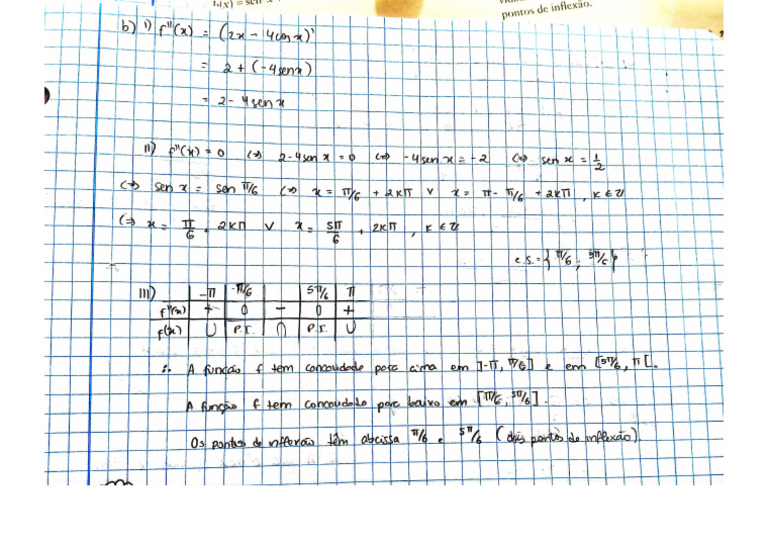 pontos de inflexão.
b) i) f''(x) = (2x - 4cos x)'
= 2 + (-4sen x)
= 2 - 4sen x
II) f''(x) = 0 (=) 2-4sen x = 0 (=) -4sen x = -2 (=) sen x = 1/2
(=) sen x = sen π/6 (=) x = π/6 + 2kπ ∨ x = π - π/6 + 2kπ, k ∈ ℤ
(=) x = π/6 + 2kπ ∨ x = 5π/6 + 2kπ, k ∈ ℤ
c.s.={π/6; 5π/6}
III) -π -π/6 5π/6 π
f''(x) + 0 - 0 + 
f(x) ∪ P.I. ∩ P.I. ∪
∴ A função f tem concavidade para cima em ]-π, π/6] e em [5π/6, π[.
A função f tem concavidade para baixo em [π/6, 5π/6].
Os pontos de inflexão têm abcissa π/6 e 5π/6 (dois pontos de inflexão).